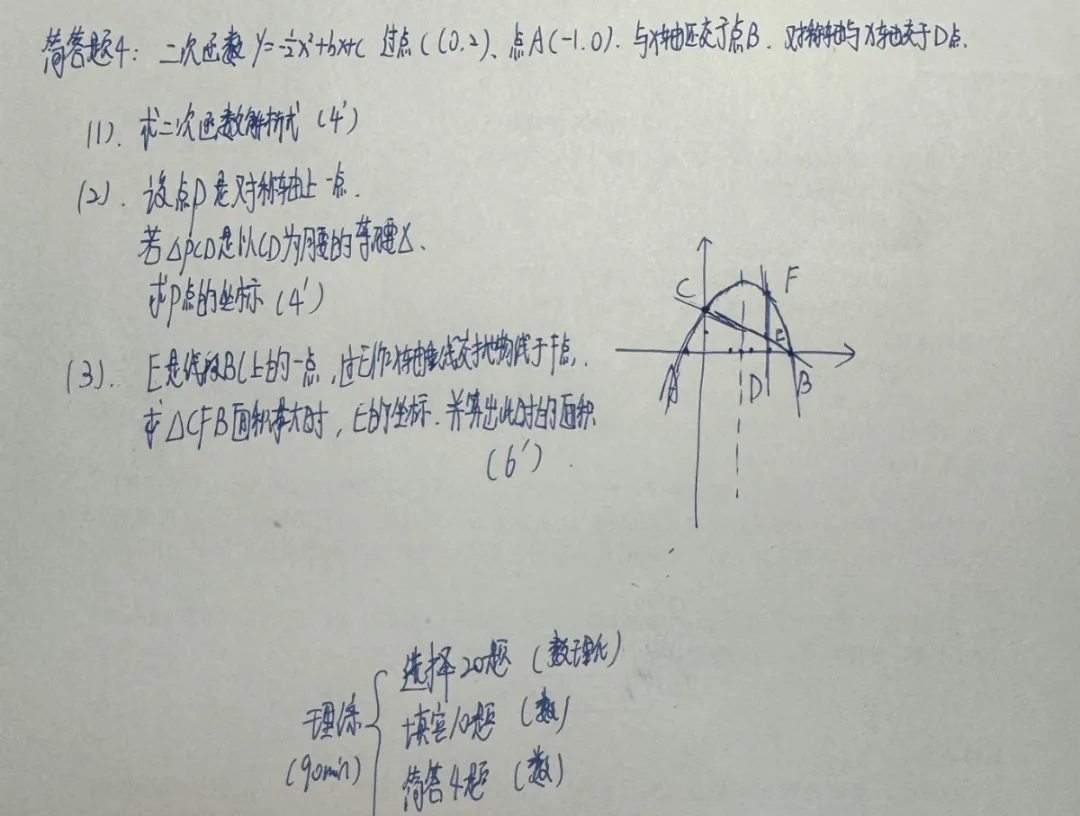 简答题4: 二次函数 y=-½x²+bx+c 过点C(0,2)、点A(-1,0). 与x轴还交于点B. 对称轴与x轴交于D点.
(1). 求二次函数解析式 (4′)
(2). 设点P是对称轴上一点.
若△PCD是以CD为腰的等腰△.
求P点的坐标 (4′)
(3). E是线段BC上的一点, 过E作x轴垂线交抛物线于F点.
求△CFB面积最大时, E的坐标. 并算出此时的面积
(6′).
C
F
E
A
D
B
理综
(90min)
选择20题 (数理化)
填空10题 (数)
简答4题 (数)